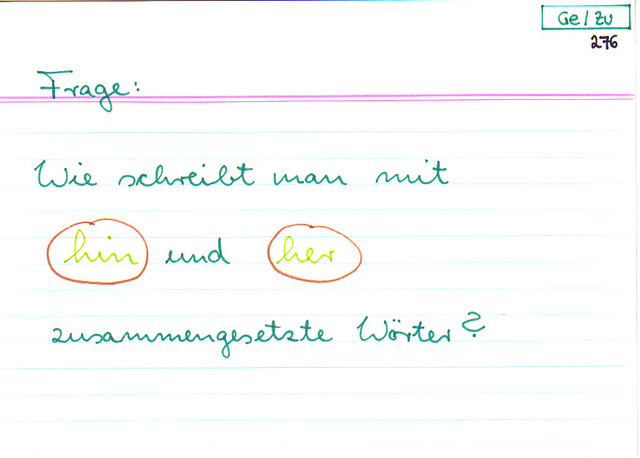 Ge/Zu
276
Frage:
Wie schreibt man mit
hin und her
zusammengesetzte Wörter?